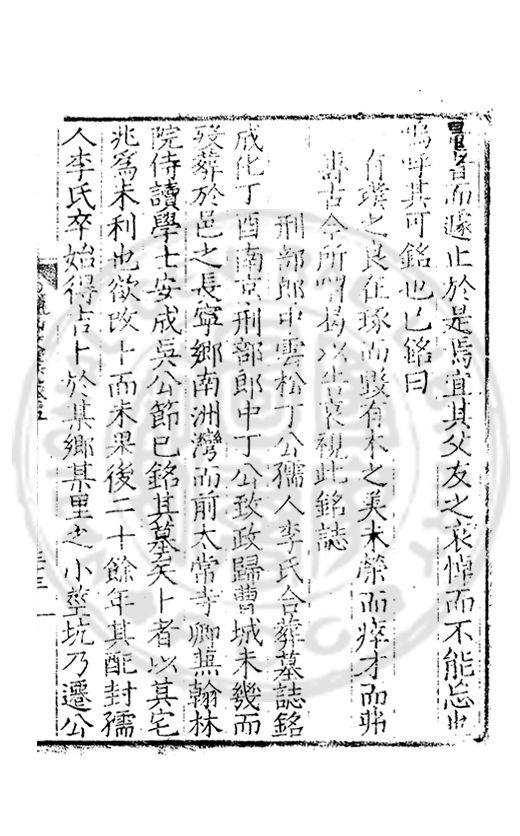 量者而遽止於是焉宜其父友之哀悼而不能忘也
嗚呼其可銘也已銘曰
有璞之良在琢而毀有木之美未榮而瘁才而弗
壽古今所喟揭以告哀視此銘誌
刑部郎中雲松丁公孺人李氏合葬墓誌銘
成化丁酉南京刑部郎中丁公致政歸豊城未幾而
歿葬於邑之長寧鄉南洲灣而前太常寺卿兼翰林
院侍讀學士安成吳公節已銘其墓矣卜者以其宅
兆為未利也欲改卜而未果後二十餘年其配封孺
人李氏卒始得吉卜於某鄉某里之小塋坑乃遷公